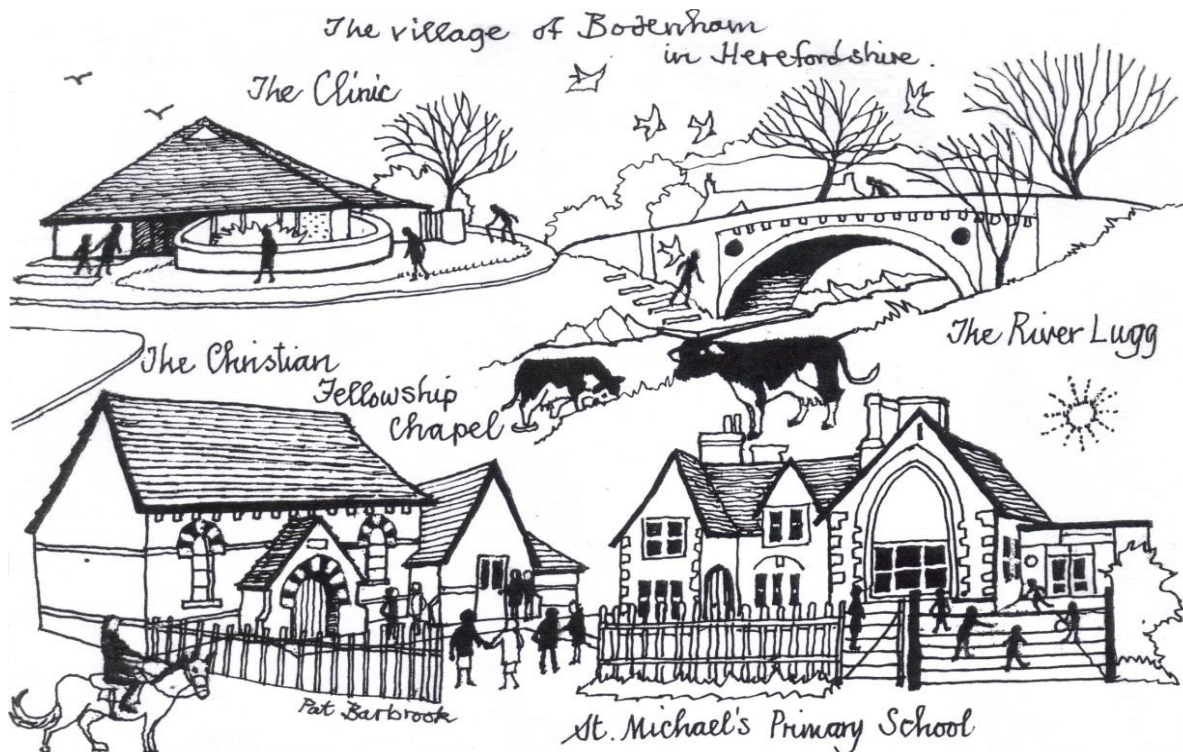 The village of Bodenham
in Herefordshire.
The Clinic
The River Lugg
The Christian
Fellowship
Chapel
Pat Barbrook
St. Michael's Primary School